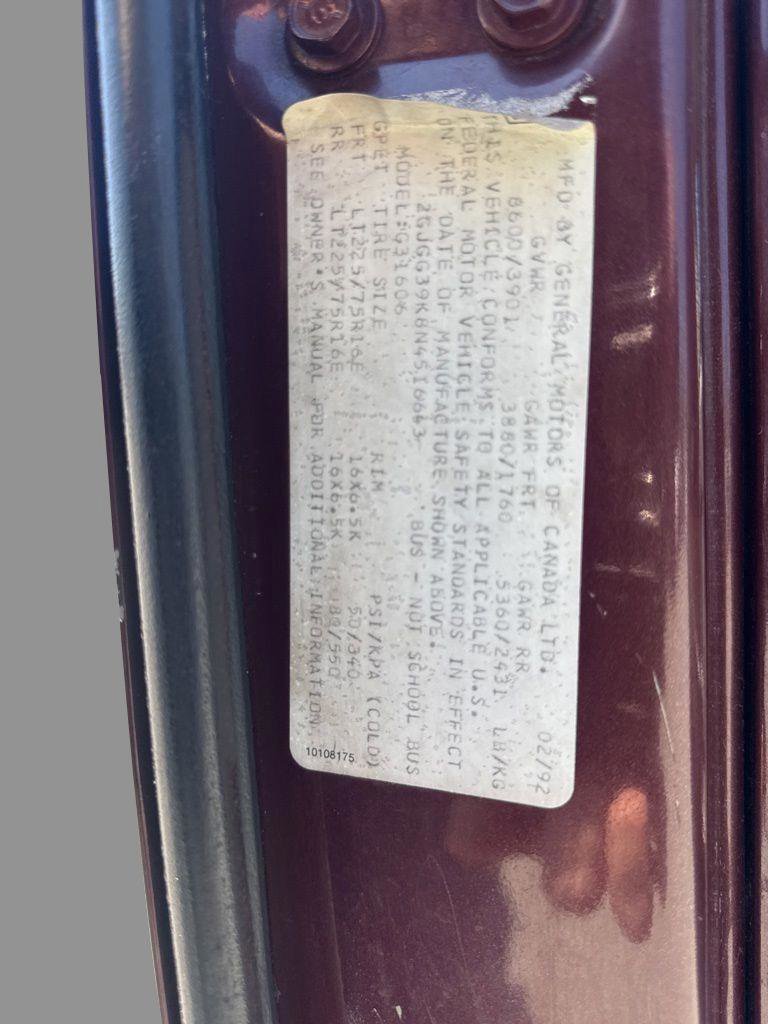 MFD BY GENERAL MOTORS OF CANADA LTD. 02/92
GVWR GAWR FRT. GAWR RR
8600/3901 3880/1760 5360/2431 LB/KG
THIS VEHICLE CONFORMS TO ALL APPLICABLE U.S.
FEDERAL MOTOR VEHICLE SAFETY STANDARDS IN EFFECT
ON THE DATE OF MANUFACTURE SHOWN ABOVE.
BUS - NOT SCHOOL BUS
MODEL: G31606
GPET TIRE SIZE RIM PSI/KPA (COLD)
FRT LT225/75R16E 16X6.5K 50/340
RR LT225/75R16E 16X6.5K 80/550
SEE OWNER'S MANUAL FOR ADDITIONAL INFORMATION.
10108175